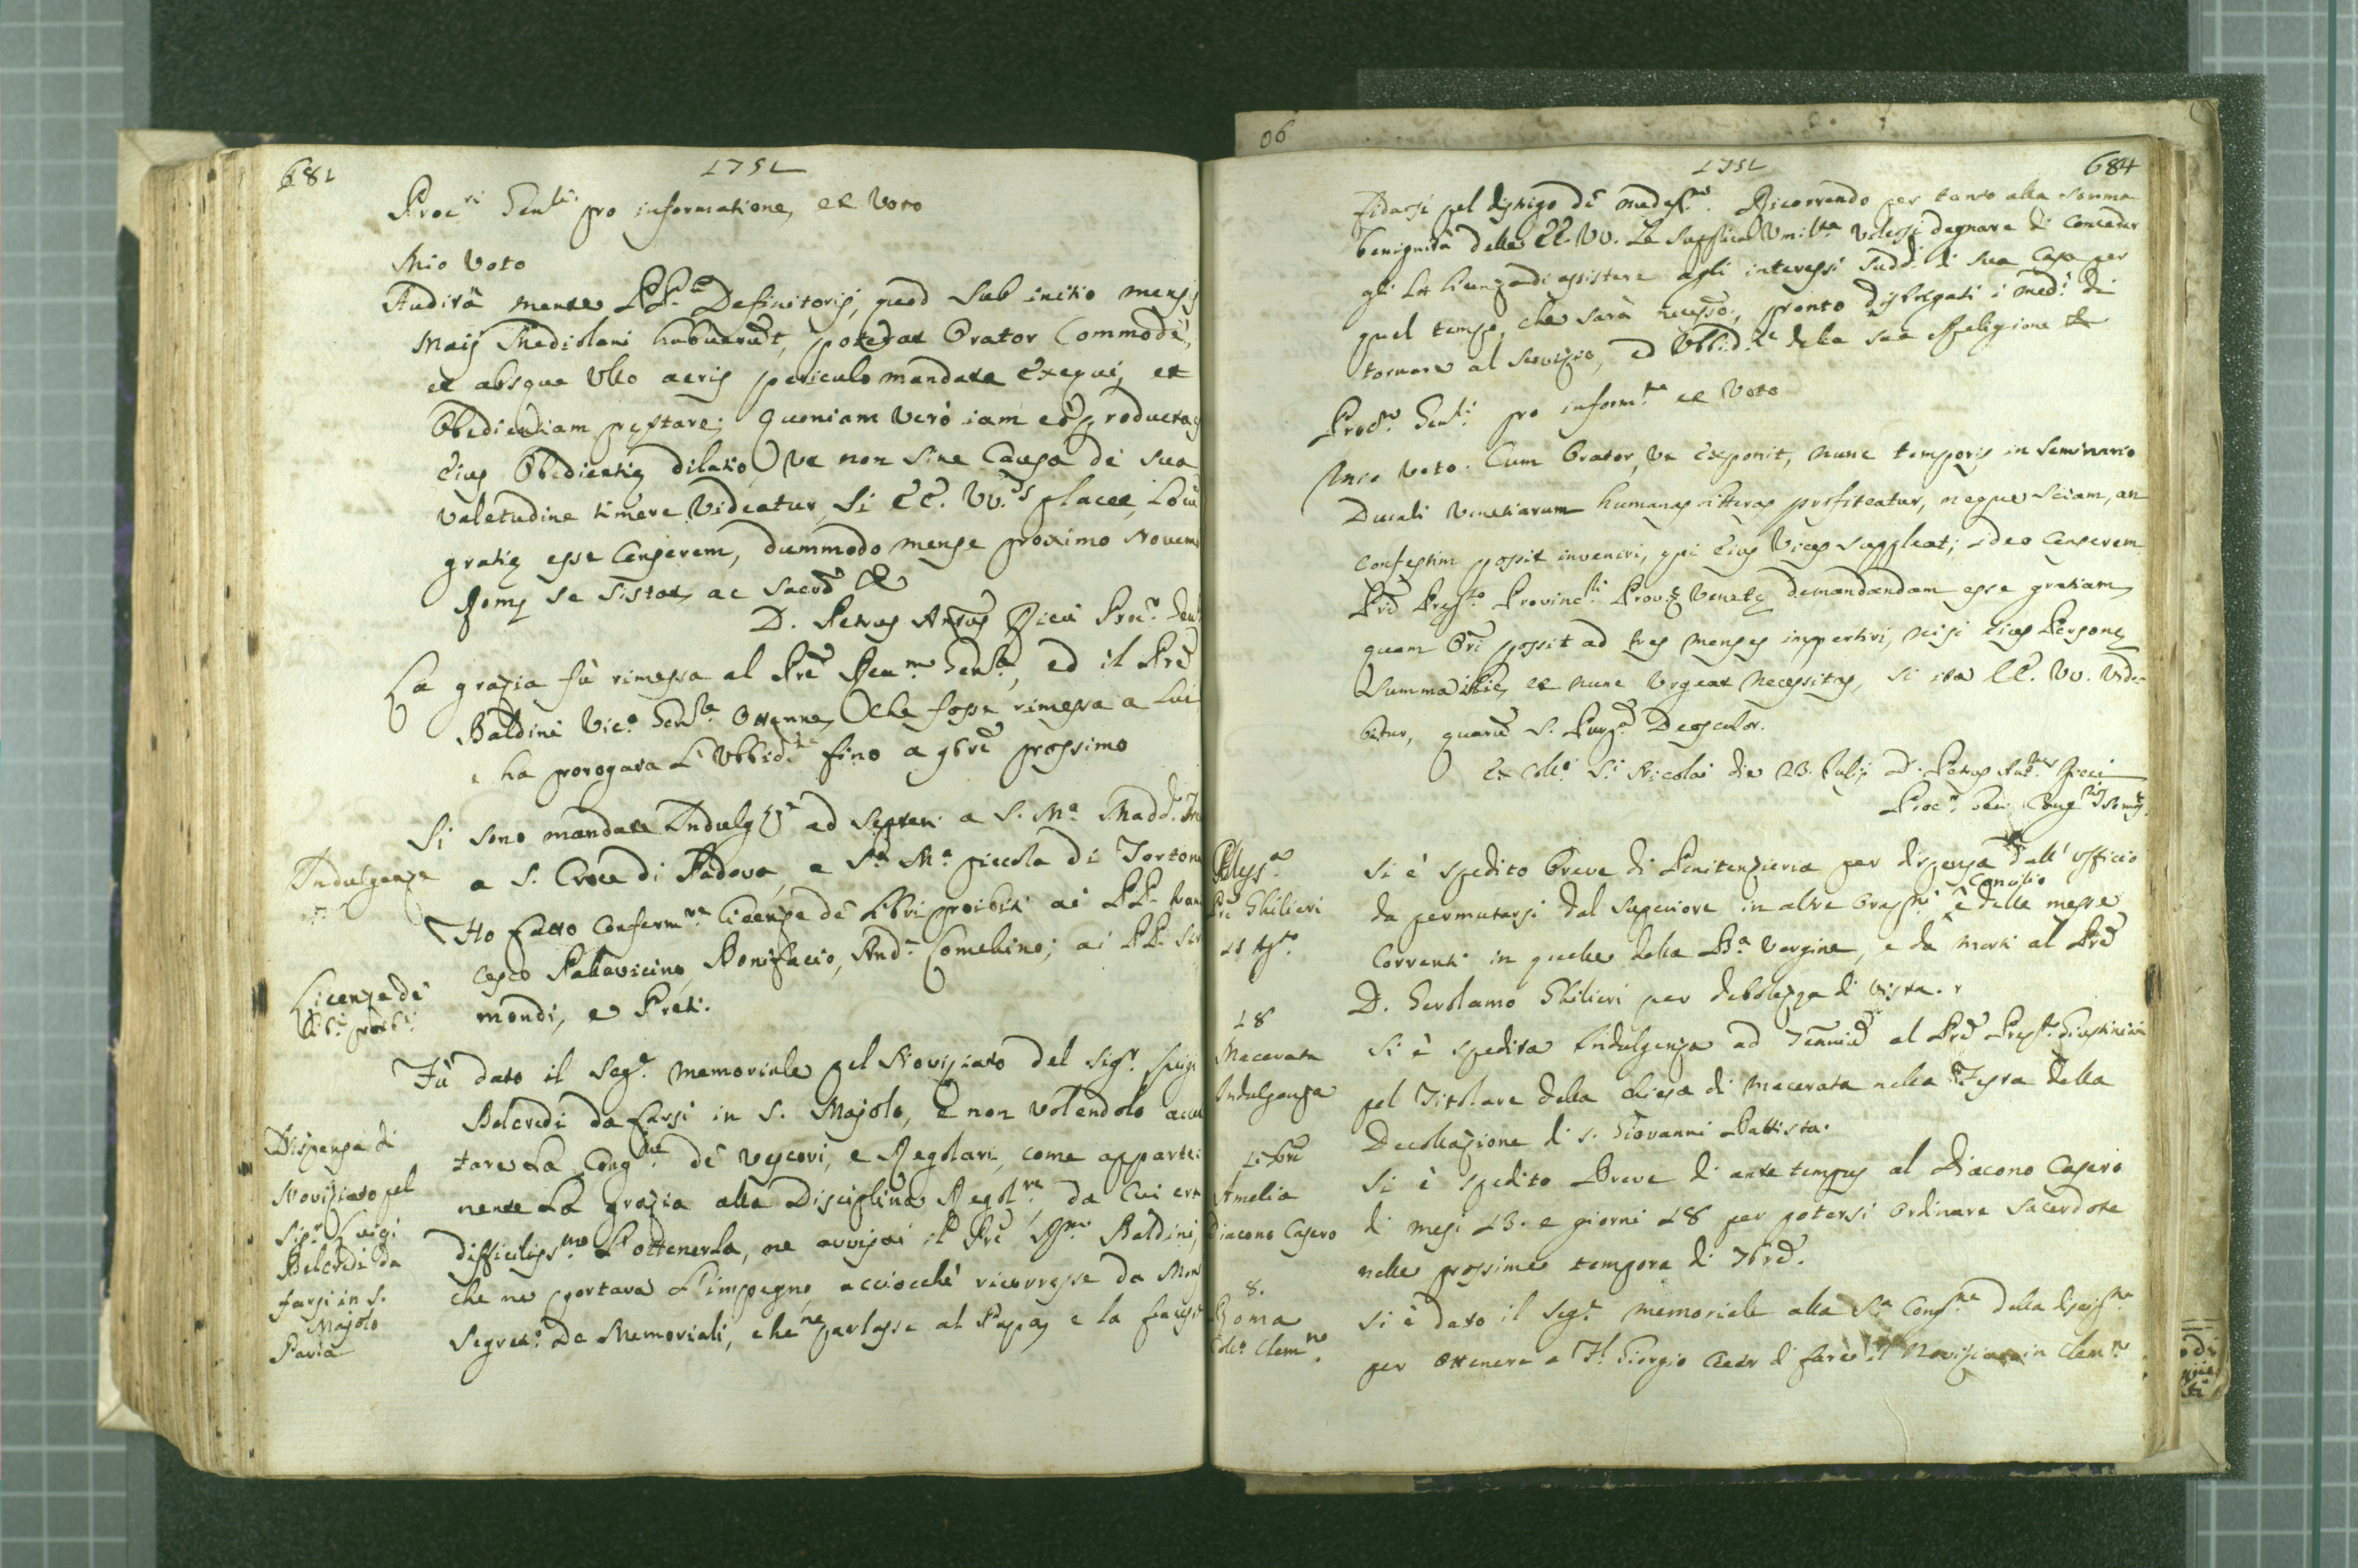 681
1751
Proc.ri Gen.li pro informatione, et Voto
Mio Voto
Audita mente PP. Definitoris, quod sub initio mensis
Maij Mediolani habuerunt, poterat Orator Commodè,
et absque Ullo aeris periculo mandata Exequi, et
Obedientiam prestare; Quoniam verò iam est producta
Eius Obedientie dilatio, Ut non sine Causa de sua
valetudine timere Videatur, Si EE. VV.s placet, Locum
gratie esse Censerem, dummodo mense proximo Novem
Rome se sistat, ac Sacro &
D. Petrus Ant.us Ricci Proc.r Gen
La grazia fù rimessa al Pre Rev.mo Gen.le, ed il Pre
Baldini Vic.o Gen.le Ottenne, che fosse rimessa a Lui
e ha prorogata L'Ubbid.za fino a 9bre prossimo
Indulgenze
Si sono mandate Indulg.ze ad Septen. a S. M.a Madd.
a S. Croce di Padova, e S.a M.a piccola di Tortona
Licenze de
Lib.i proib.i
Ho fatto Conferm.re Licenze de Libri proibiti ai PP. Fran
cesco Pallavicino, Bonifacio, And.a Comelino; ai PP.
mondi, e Preti.
Dispensa di
Noviziato pel
Sig.r Luigi
Belcredi da
farsi in S.
Majolo
Pavia
Fù dato il Seg.e memoriale pel Noviziato del Sig.r Luigi
Belcredi da farsi in S. Majolo, e non volendolo accet
tare La Cong.ne de Vescovi, e Regolari, come apparte:
nente La grazia alla Disciplina Regol.re, da Cui era
difficiliss.mo L'ottenerla, ne avvisai il Pre Baldini,
che ne portava L'impegno, acciocchè ricorresse da Mons
Segret.o De Memoriali, che ne parlasse al Papa, e la
06
1751
684
fidarsi pel disbrigo de medes.mi. Ricorrendo per tanto alla somma
benignità delle EE. VV. Le Supplica Umil.te Volersi degnare di Conceder
gli La Licenza di assistere agli interessi Sudd.i di Sua Casa per
quel tempo, che sarà necess.o, pronto disbrigati i med.i di
tornare al Servizio, ed Ubbid.za della sua Religione &
Proc.ri Gen.li pro inform.ne et Voto
Mio Voto. Cum Orator, Ut Exponit, nunc temporis in Seminario
Ducali Venetiarum humanas litteras profiteatur, neque sciam, an
Confestim possit inveniri, qui Eius Vices suppleat; ideo Censerem
Pri Prep.to Provinc.li Prov.e Venete demandandam esse gratiam,
quam Ori possit ad tres menses impertiri, nisi Eius Persone
Summa, et nunc Urgeat Necessitas, si ita EE. VV. Vide
bitur, quarum S. Purp.a Deosculor.
Ex Coll.o S.i Nicolai die 23. Julij D. Petrus Ant.us Ricci
Proc.r Gen. Cong.nis Som.
Pre Ghilieri
Si è spedito Breve di Penitenzieria per dispensa dall' Officio
da permutarsi dal Superiore in altre Oraz.ni Consilio e delle messe
Correnti in quelle della B.a Vergine, e da morti al Pre
D. Gerolamo Ghilieri per debolezza di Vista.
18
Macerata
Indulgenza
Si è spedita Indulgenza ad 7ennium al Pre Prep.to Giustiniani
pel Titolare della Chiesa di Macerata nella Festa della
Decollazione di S. Giovanni Battista.
Amelia
Diacono Casero
Si è spedito Breve di ante tempus al Diacono Casero
di mesi 13. e giorni 18 per potersi Ordinare Sacerdote
nelle prossime tempora di 7bre.
8.
Roma
Coll.o Clem.no
Si è dato il Seg.e memoriale alla S.a Cong.ne della Discip.na
per Ottenere a Giorgio di fare il Noviziato in Clem.no